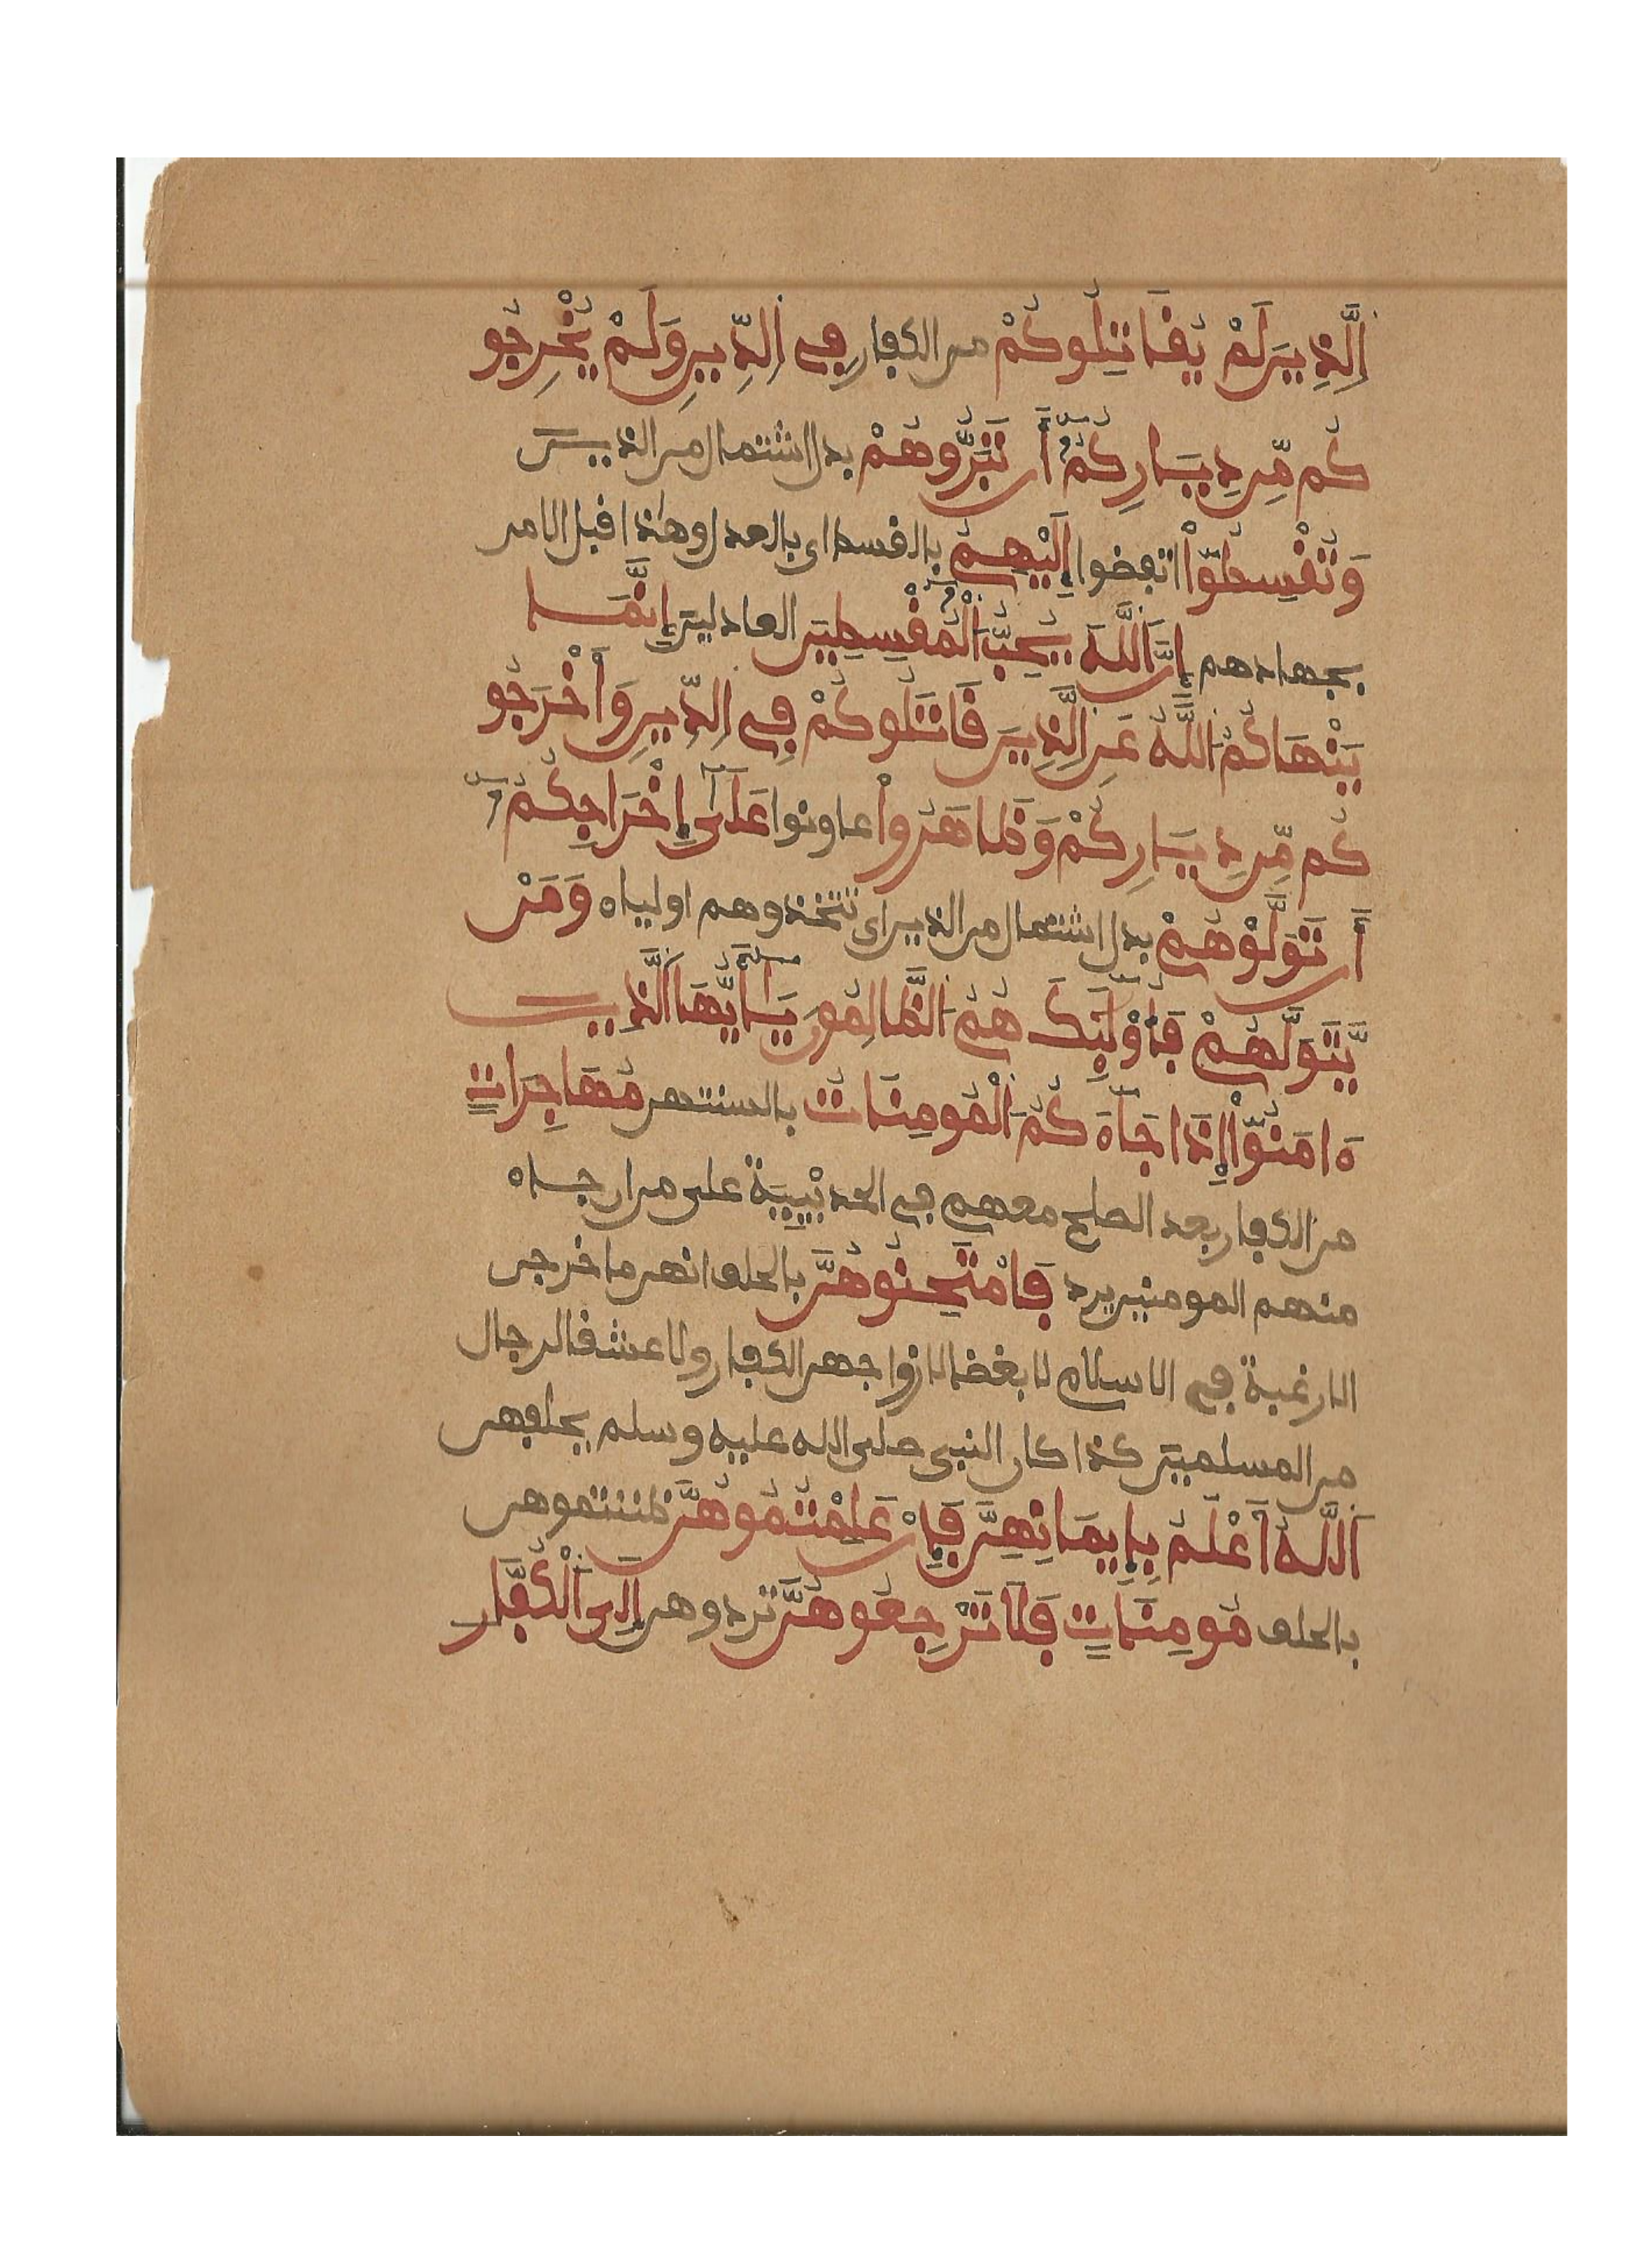 اَلَّذِينَ لَمْ يُقَاتِلُوكُمْ من الكفار فِي اِلدِّينِ وَلَمْ يُخْرِجُو
كُم مِّن دِيَارِكُمُۥٓ أَن تَبَرُّوهُمْ بدل اشتمال من الذين
وَتُقْسِطُوٓاْ تفضوا إِلَيْهِمُۥٓ بالقسط اى بالعدل وهذا قبل الامر
بجهادهم إِنَّ اَللَّهَ يُحِبُّ اُلْمُقْسِطِينَ العادلين إِنَّمَا
يَنْهَاكُمُ اُللَّهُ عَنِ اِلَّذِينَ قَاتَلُوكُمْ فِي اِلدِّينِ وَأَخْرَجُو
كُم مِّن دِيَارِكُمْ وَظَاهَرُواْ عاونوا عَلَىٰٓ إِخْرَاجِكُمُۥٓ
أَن تَوَلَّوْهُمْ بدل اشتمال من الذين اى تتخذوهم اولياء وَمَنْ
يَّتَوَلَّهُمْ فَأُوْلَٰٓئِكَ هُمُ اُلظَّالِمُونَ يَٰٓأَيُّهَا اَلَّذِينَ
ءَامَنُوٓاْ إِذَا جَآءَكُمُ اُلْمُومِنَاتُ بالسنتهن مُهَاجِرَاتٍ
من الكفار بعد الصلح معهم في الحديْبِيَة على من ان جاء
منهم المومنين يرد فَامْتَحِنُوهُنَّ بالحلف انهن ما خرجن
الا رغبة في الاسلام لا بغضا لازواجهن الكفار ولا عشقا لرجال
من المسلمين كذا كان النبي صلى الله عليه وسلم يحلفهن
اَللَّهُ أَعْلَمُ بِإِيمَانِهِنَّ فَإِنْ عَلِمْتُمُوهُنَّ ظننتموهن
بالحلف مُومِنَاتٍ فَلَا تَرْجِعُوهُنَّ تردوهن إِلَى اَلْكُفَّارِ